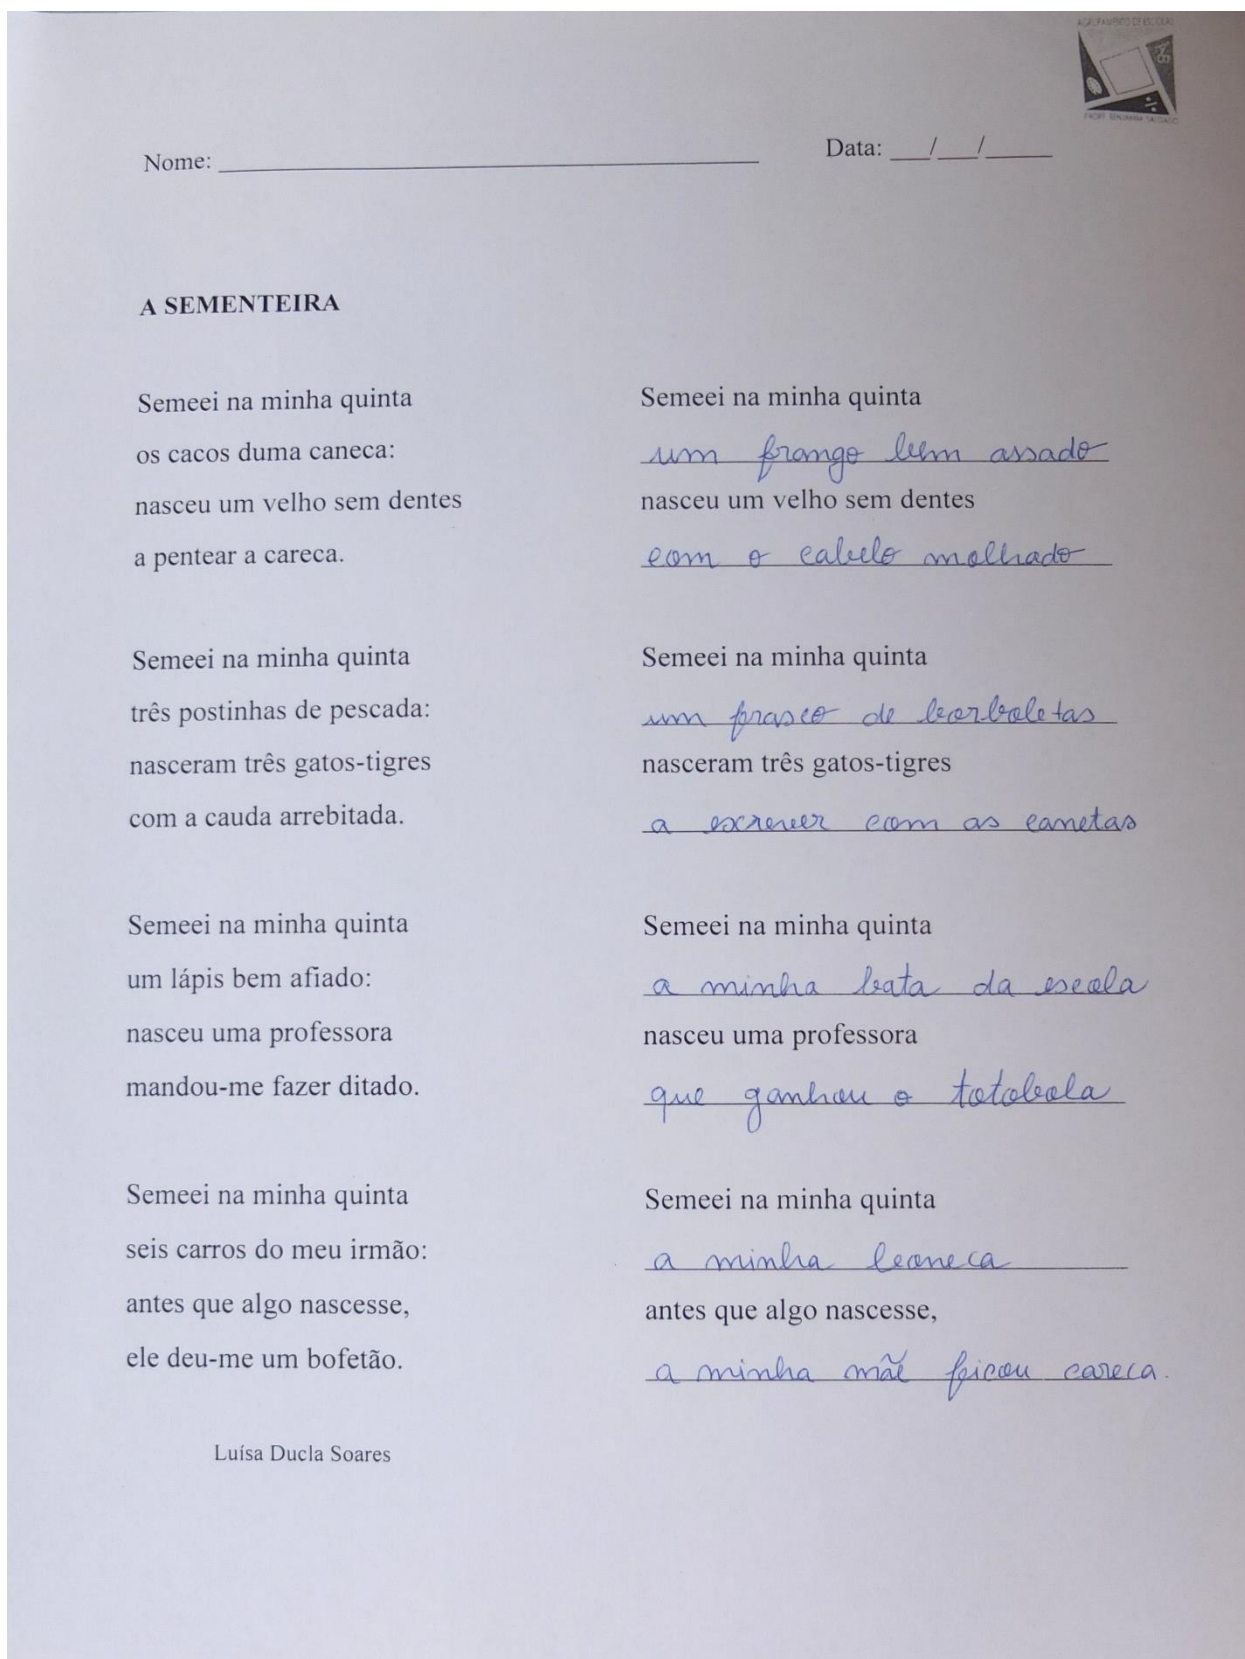 AGRUPAMENTO DE ESCOLAS
Nome:
Data: ___/___/_____
A SEMENTEIRA
Semeei na minha quinta
os cacos duma caneca:
nasceu um velho sem dentes
a pentear a careca.
Semeei na minha quinta
três postinhas de pescada:
nasceram três gatos-tigres
com a cauda arrebitada.
Semeei na minha quinta
um lápis bem afiado:
nasceu uma professora
mandou-me fazer ditado.
Semeei na minha quinta
seis carros do meu irmão:
antes que algo nascesse,
ele deu-me um bofetão.
Luísa Ducla Soares
Semeei na minha quinta
um frango bem assado
nasceu um velho sem dentes
com o cabelo molhado
Semeei na minha quinta
um frasco de borboletas
nasceram três gatos-tigres
a escrever com as canetas
Semeei na minha quinta
a minha bata da escola
nasceu uma professora
que ganhou o totobola
Semeei na minha quinta
a minha boneca
antes que algo nascesse,
a minha mãe ficou careca.